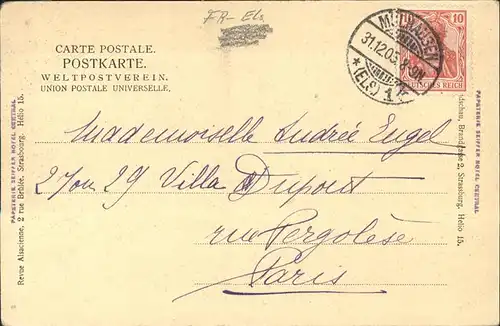 FR- Els
CARTE POSTALE.
POSTKARTE.
WELTPOSTVEREIN.
UNION POSTALE UNIVERSELLE.
MÜLHAUSEN
31.12.03.
*(ELS.)
1
10
DEUTSCHES REICH
Mademoiselle Andrée Engel
27 ou 29 Villa Dupont
rue Pergolèse
Paris
PAPETERIE SEIFFER HOTEL CENTRAL
Revue Alsacienne, 2 rue Brûlée, Strasbourg. Hélio 15.
2, Strassburg. Helio 15.
PAPETERIE SEIFFER HOTEL CENTRAL